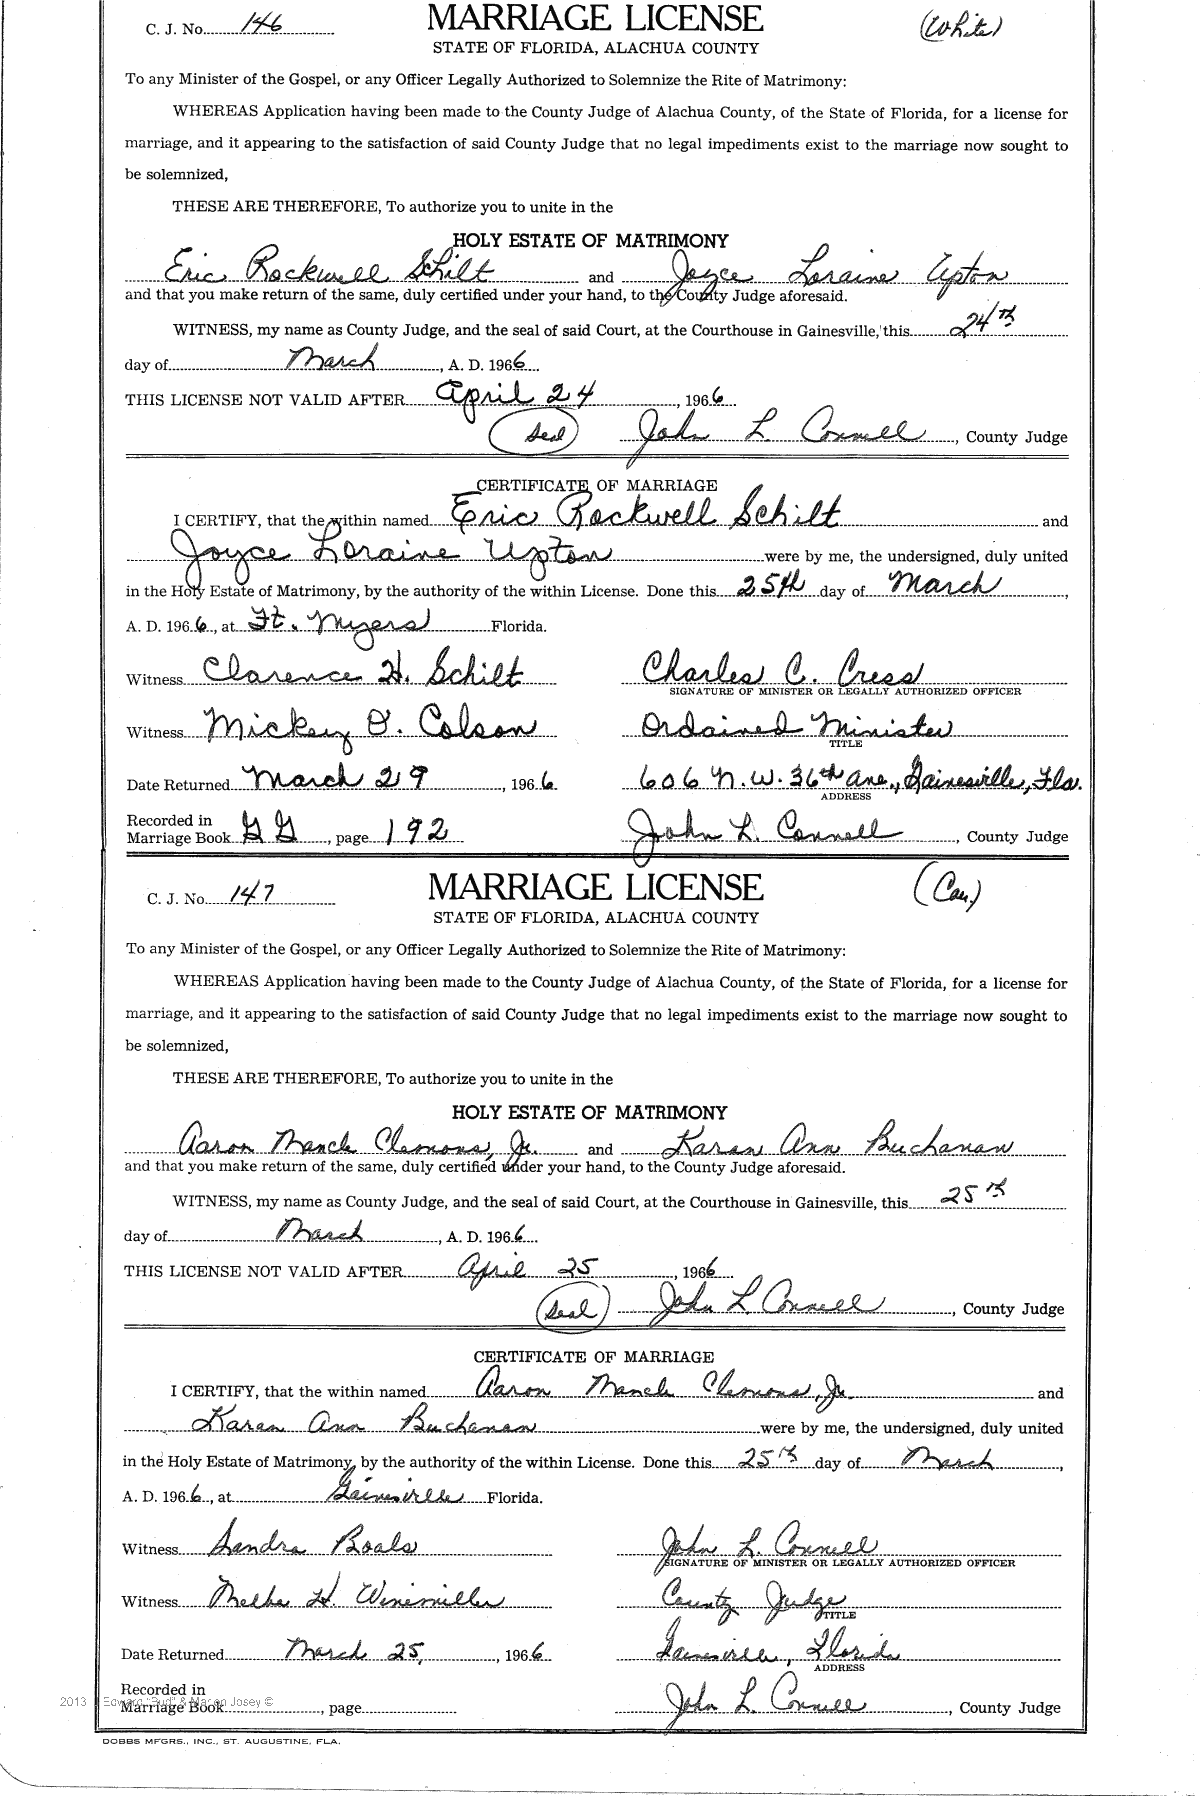 C. J. No. 146 MARRIAGE LICENSE (White)
STATE OF FLORIDA, ALACHUA COUNTY
To any Minister of the Gospel, or any Officer Legally Authorized to Solemnize the Rite of Matrimony:
WHEREAS Application having been made to the County Judge of Alachua County, of the State of Florida, for a license for
marriage, and it appearing to the satisfaction of said County Judge that no legal impediments exist to the marriage now sought to
be solemnized,
THESE ARE THEREFORE, To authorize you to unite in the
HOLY ESTATE OF MATRIMONY
Eric Rockwell Schilt and Joyce Loraine Upton
and that you make return of the same, duly certified under your hand, to the County Judge aforesaid.
WITNESS, my name as County Judge, and the seal of said Court, at the Courthouse in Gainesville, this 24th
day of March, A. D. 1966
THIS LICENSE NOT VALID AFTER April 24, 1966
(Seal) John L. Connell, County Judge
CERTIFICATE OF MARRIAGE
I CERTIFY, that the within named Eric Rockwell Schilt and
Joyce Loraine Upton were by me, the undersigned, duly united
in the Holy Estate of Matrimony, by the authority of the within License. Done this 25th day of March,
A. D. 1966, at Ft. Myers Florida.
Witness Clarence H. Schilt Charles C. Cress
SIGNATURE OF MINISTER OR LEGALLY AUTHORIZED OFFICER
Witness Mickey O. Colson Ordained Minister
TITLE
Date Returned March 29, 1966 606 N.W. 36th Ave., Gainesville, Fla.
ADDRESS
Recorded in
Marriage Book GG, page 192 John L. Connell, County Judge
C. J. No. 147 MARRIAGE LICENSE (Cau.)
STATE OF FLORIDA, ALACHUA COUNTY
To any Minister of the Gospel, or any Officer Legally Authorized to Solemnize the Rite of Matrimony:
WHEREAS Application having been made to the County Judge of Alachua County, of the State of Florida, for a license for
marriage, and it appearing to the satisfaction of said County Judge that no legal impediments exist to the marriage now sought to
be solemnized,
THESE ARE THEREFORE, To authorize you to unite in the
HOLY ESTATE OF MATRIMONY
Aaron Mancle Clemons, Jr. and Karen Ann Buchanan
and that you make return of the same, duly certified under your hand, to the County Judge aforesaid.
WITNESS, my name as County Judge, and the seal of said Court, at the Courthouse in Gainesville, this 25th
day of March, A. D. 1966
THIS LICENSE NOT VALID AFTER April 25, 1966
(Seal) John L. Connell, County Judge
CERTIFICATE OF MARRIAGE
I CERTIFY, that the within named Aaron Mancle Clemons, Jr. and
Karen Ann Buchanan were by me, the undersigned, duly united
in the Holy Estate of Matrimony, by the authority of the within License. Done this 25th day of March,
A. D. 1966, at Gainesville Florida.
Witness Sandra Boals John L. Connell
SIGNATURE OF MINISTER OR LEGALLY AUTHORIZED OFFICER
Witness Melba H. Winemiller County Judge
TITLE
Date Returned March 25, 1966 Gainesville, Florida
ADDRESS
Recorded in
2013 Edward "Bud" & Maron Josey ©
Marriage Book, page John L. Connell, County Judge
DOBBS MFGRS., INC., ST. AUGUSTINE, FLA.